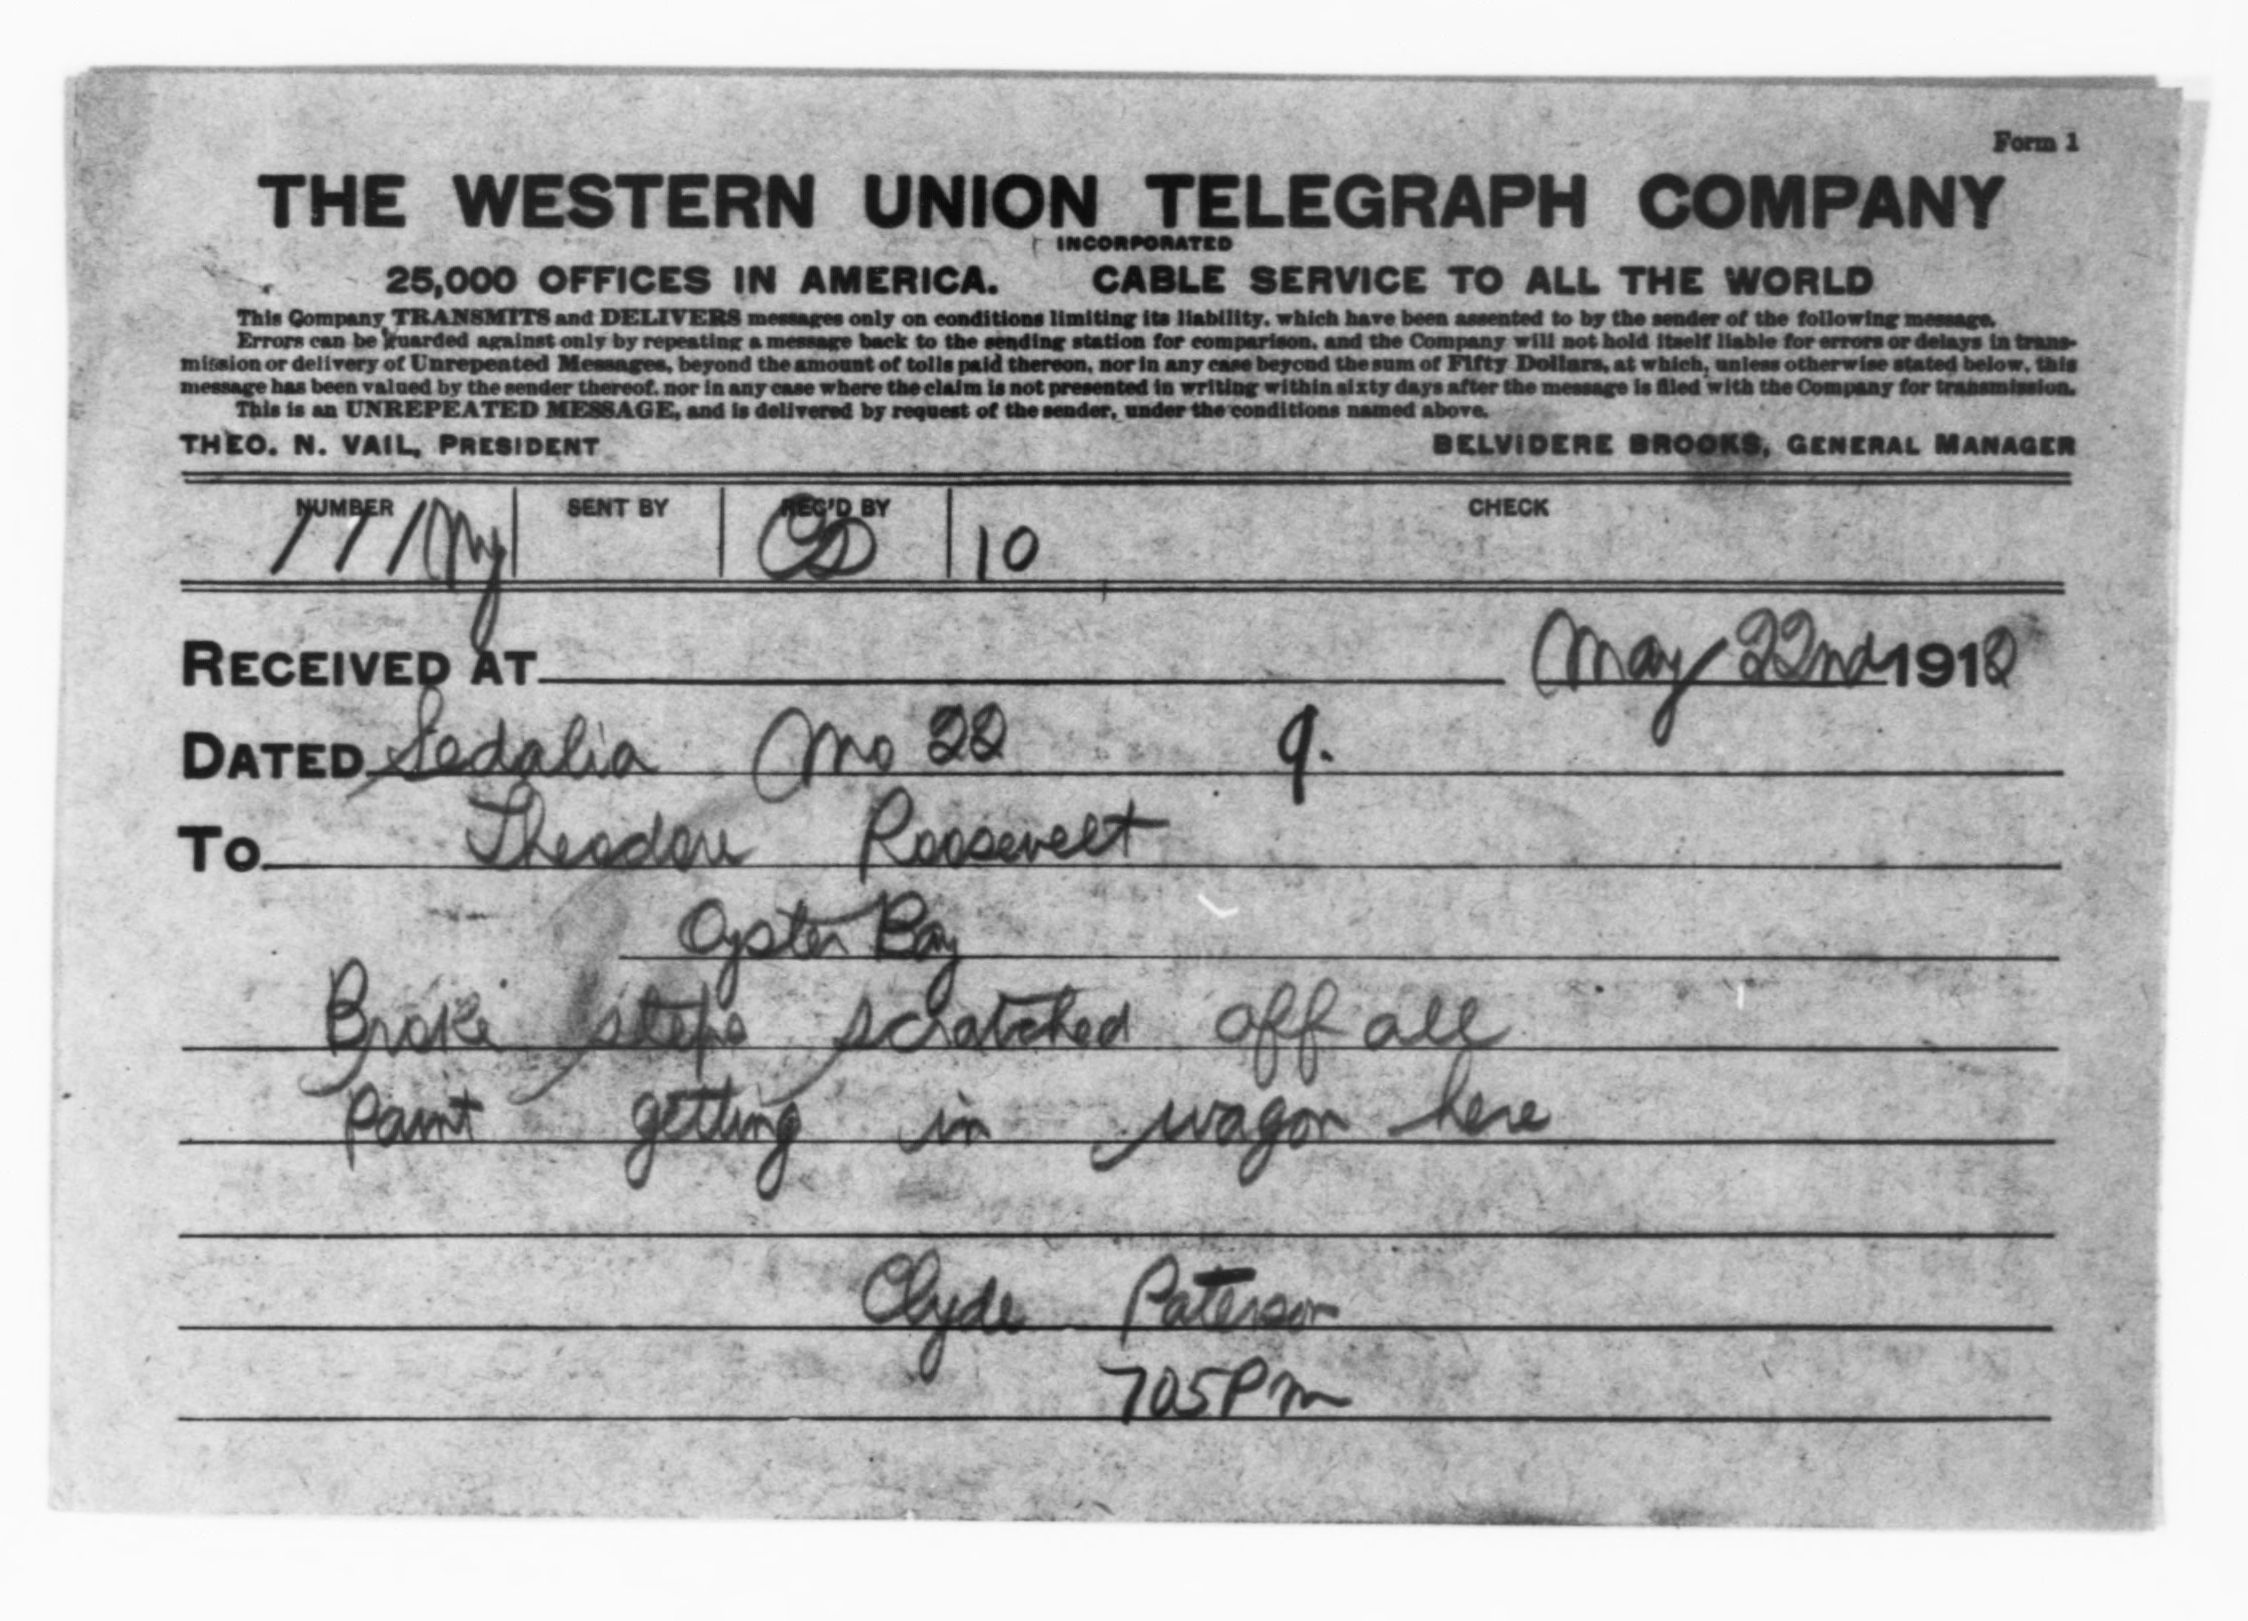 Form 1
THE WESTERN UNION TELEGRAPH COMPANY
INCORPORATED
25,000 OFFICES IN AMERICA. CABLE SERVICE TO ALL THE WORLD
This Company TRANSMITS and DELIVERS messages only on conditions limiting its liability, which have been assented to by the sender of the following message.
Errors can be guarded against only by repeating a message back to the sending station for comparison, and the Company will not hold itself liable for errors or delays in trans-
mission or delivery of Unrepeated Messages, beyond the amount of tolls paid thereon, nor in any case beyond the sum of Fifty Dollars, at which, unless otherwise stated below, this
message has been valued by the sender thereof, nor in any case where the claim is not presented in writing within sixty days after the message is filed with the Company for transmission.
This is an UNREPEATED MESSAGE, and is delivered by request of the sender, under the conditions named above.
THEO. N. VAIL, PRESIDENT BELVIDERE BROOKS, GENERAL MANAGER
NUMBER SENT BY REC'D BY CHECK
111 Ny 10
RECEIVED AT May 22nd 1912
DATED Sedalia Mo 22 9.
To Theodore Roosevelt
Oyster Bay
Broke steps scratched off all
paint getting in wagon here
Clyde Paterson
705 Pm